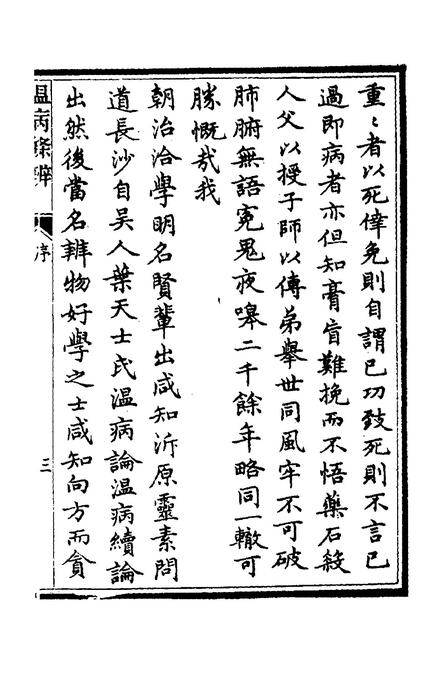 重〻者以死倖免則自謂已功致死則不言已
過即病者亦但知膏肓難挽而不悟藥石殺
人父以授子師以傳弟舉世同風牢不可破
肺腑無語寃鬼夜嘷二千餘年略同一轍可
勝慨哉我
朝治洽學明名賢輩出咸知泝原靈素問
道長沙自吳人葉天士氏温病論温病續論
出然後當名辨物好學之士咸知向方而貪
温病條辨
序
三